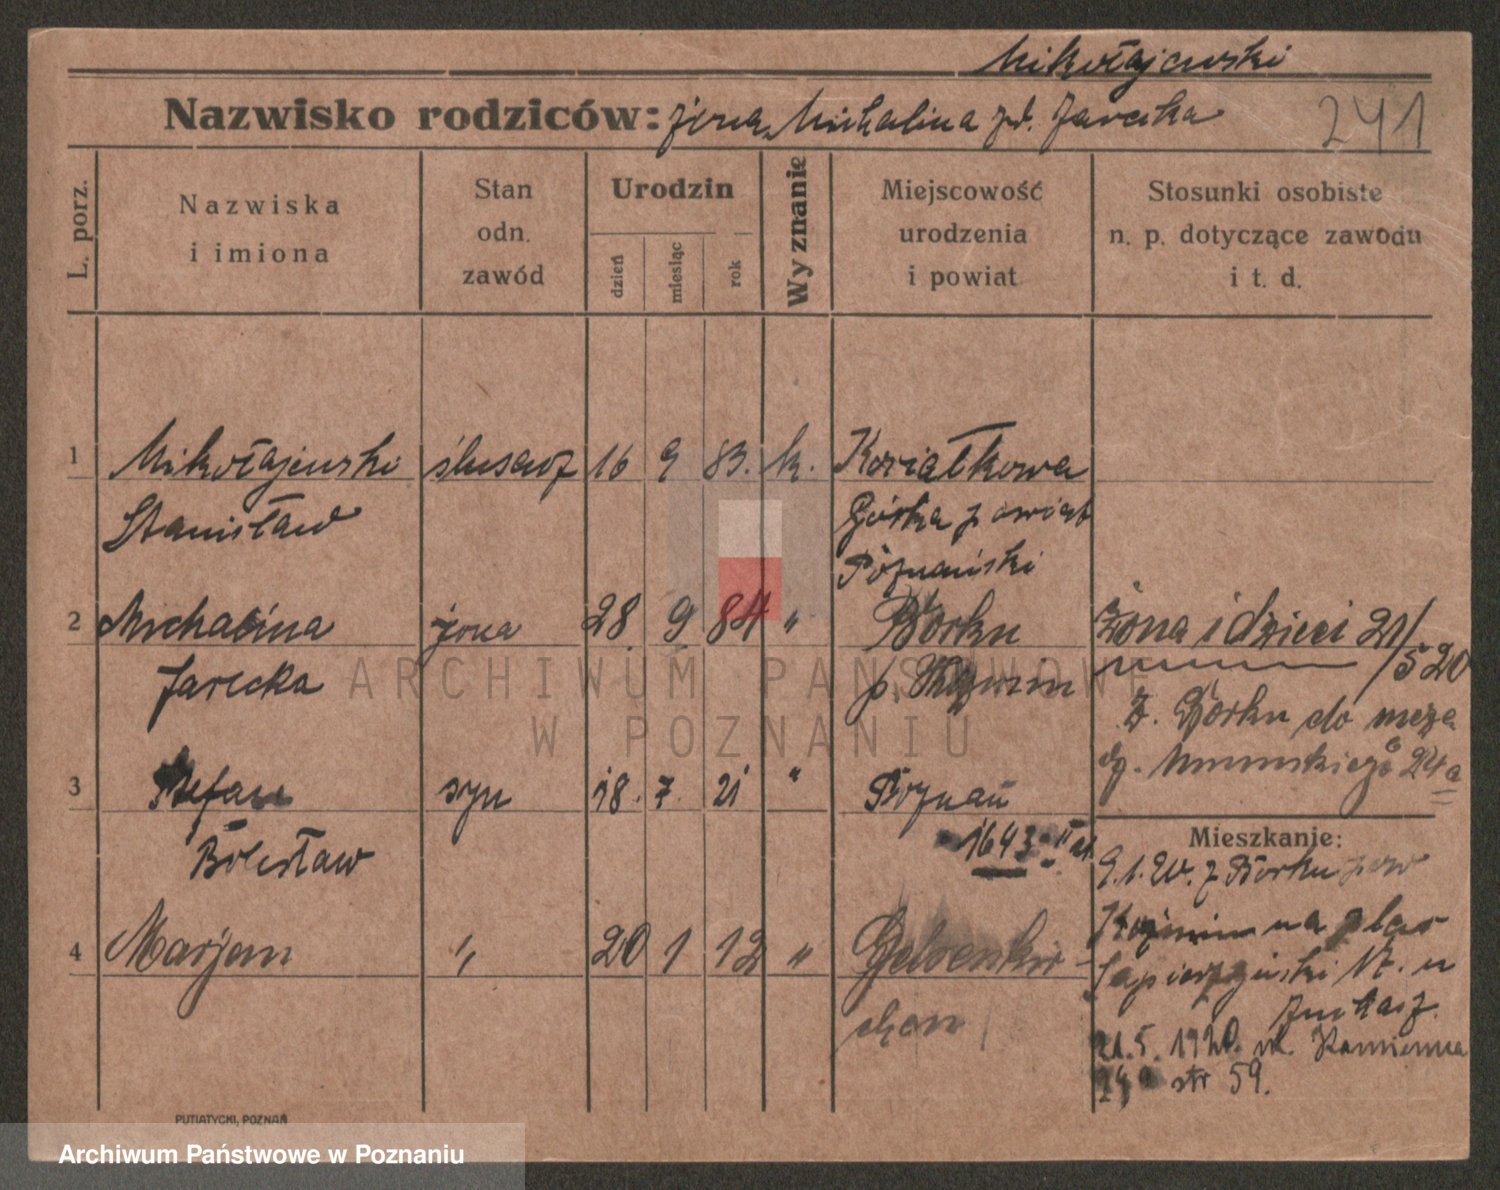 Mikołajewski
Nazwisko rodziców: żona Michalina zd. Jarecka
241
L. porz.
Nazwiska
i imiona
Stan
odn.
zawód
Urodzin
dzień
miesiąc
rok
Wyznanie
Miejscowość
urodzenia
i powiat
Stosunki osobiste
n. p. dotyczące zawodu
i t. d.
1 Mikołajewski ślusarz 16 9 83. k. Kwiatkowa
Stanisław
Górka powiat
Poznański
2 Michalina żona 28. 9 84 " Borku
Jarecka
p. Koźmin
żona i dzieci 21/
/5 20
z. Borku do męża
24a
3 Stefan syn 18. 7. 21 " Poznań
Bolesław
1643 II
4 Marjan " 20 1 12 " Gelsenkir-
chen
Mieszkanie:
9.1.20. z Borku pow
Koźmin na plac
Sapieżyński 17. u
21.5.1920. ul. Kamienna
str 59.
PUTIATYCKI, POZNAŃ
ARCHIWUM PAŃSTWOWE
W POZNANIU
Archiwum Państwowe w Poznaniu